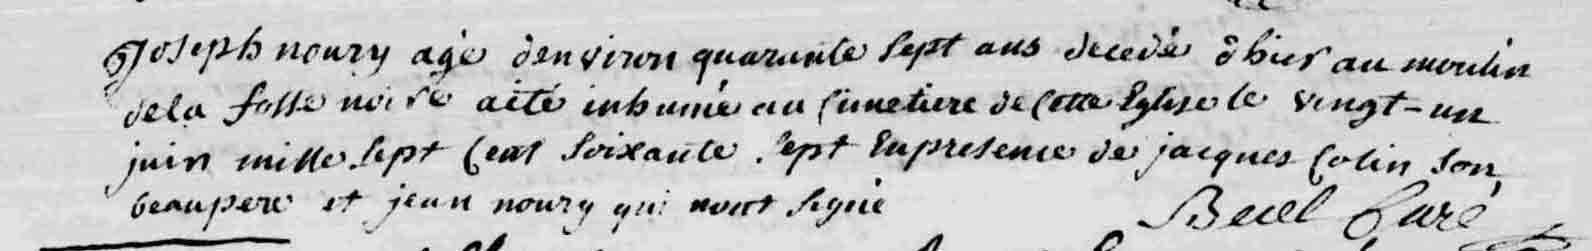 Joseph noury agé denviron quarante sept ans decedé dhier au moulin
dela fosse noire aeté inhumé au Cimetiere de Cette Eglise le vingt-un
juin mille sept Cent soixante sept En presence de jacques Colin son
beaupere et jean noury qui nont signé
Curé